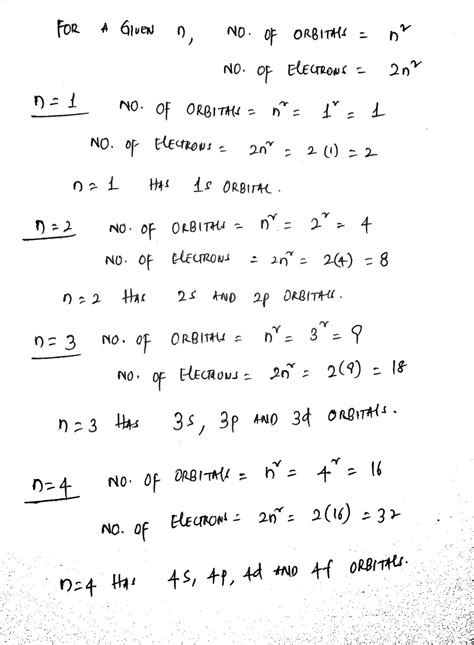 FOR A GIVEN n, NO. OF ORBITALS = n²
NO. OF ELECTRONS = 2n²
n = 1 NO. OF ORBITALS = n² = 1² = 1
NO. OF ELECTRONS = 2n² = 2(1) = 2
n = 1 HAS 1s ORBITAL.
n = 2 NO. OF ORBITALS = n² = 2² = 4
NO. OF ELECTRONS = 2n² = 2(4) = 8
n = 2 HAS 2s AND 2p ORBITALS.
n = 3 NO. OF ORBITALS = n² = 3² = 9
NO. OF ELECTRONS = 2n² = 2(9) = 18
n = 3 HAS 3s, 3p AND 3d ORBITALS.
n = 4 NO. OF ORBITALS = n² = 4² = 16
NO. OF ELECTRONS = 2n² = 2(16) = 32
n = 4 HAS 4s, 4p, 4d AND 4f ORBITALS.